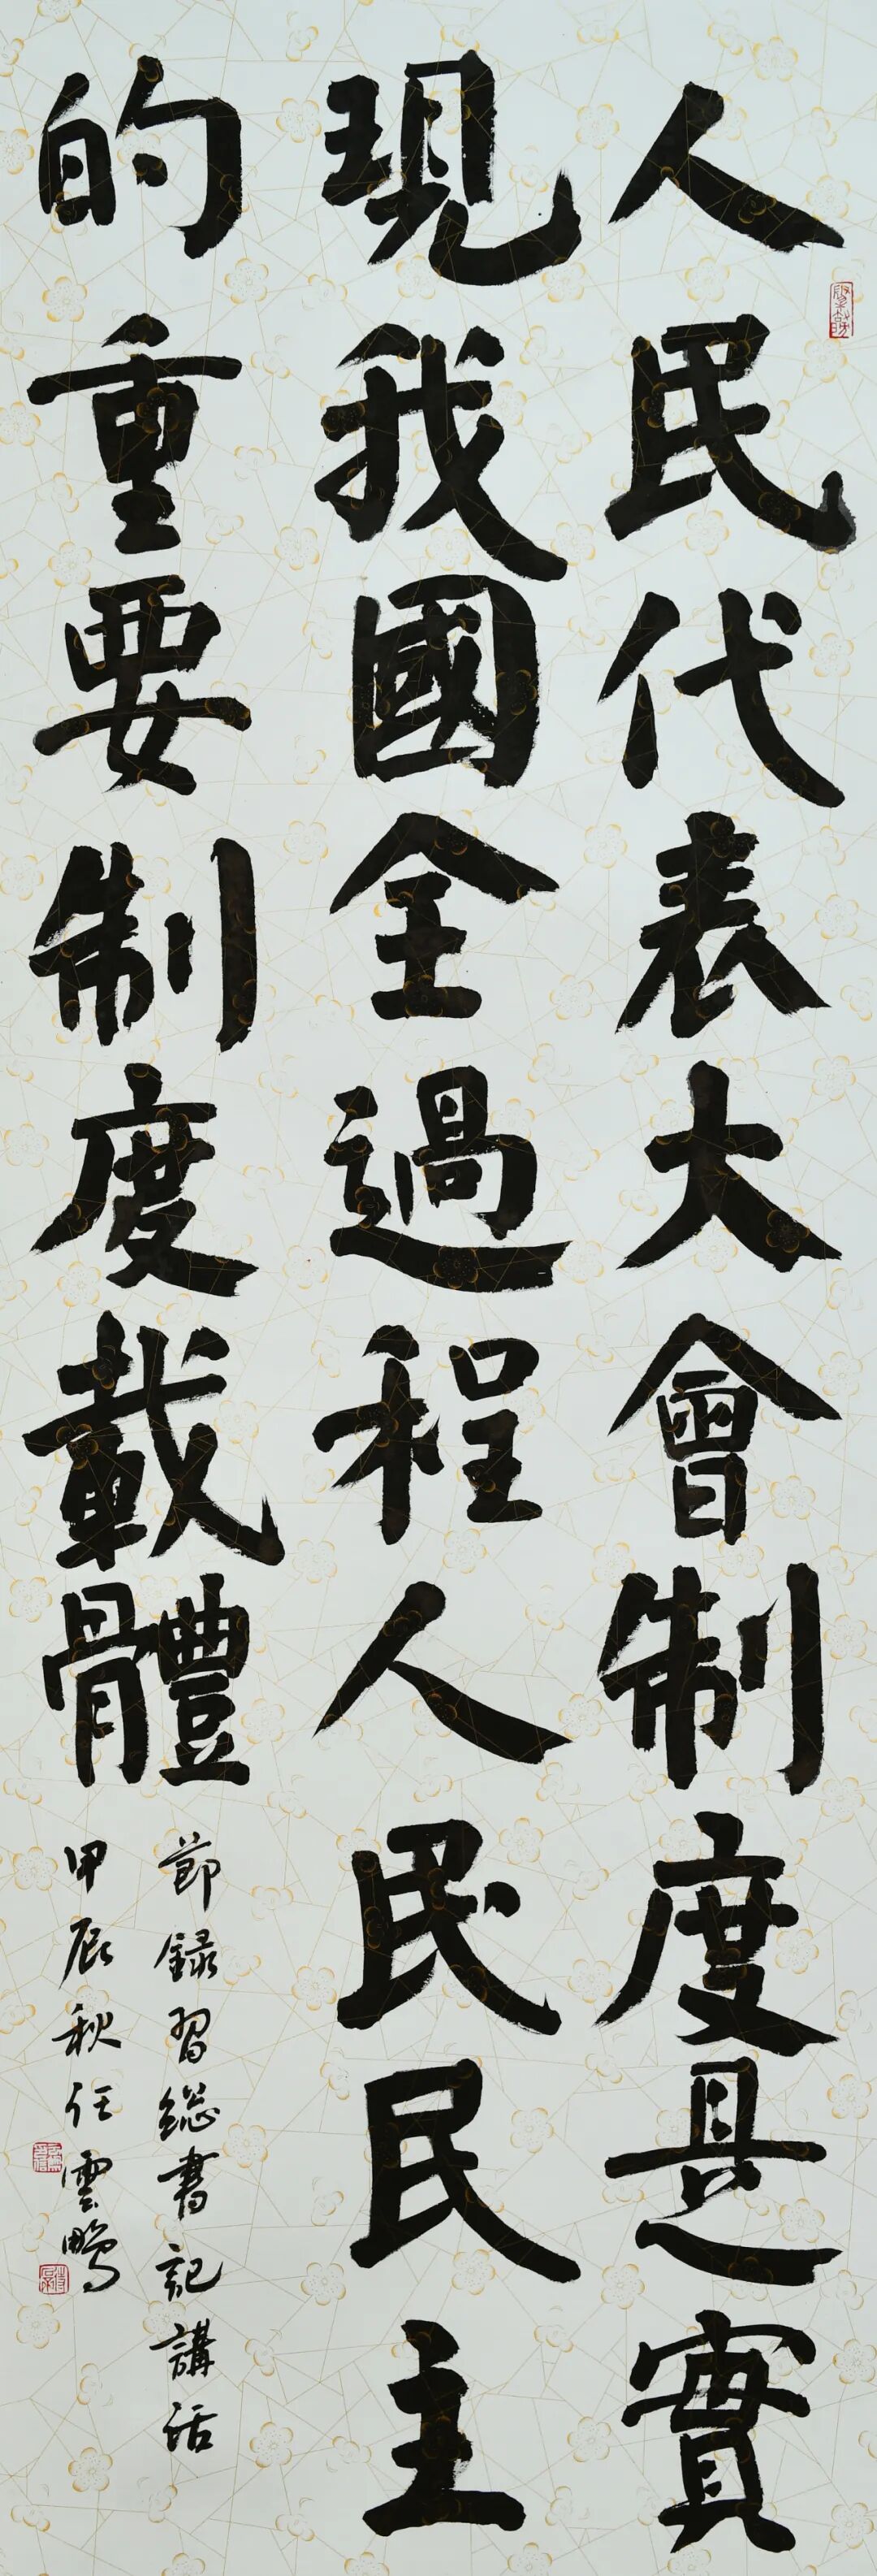 人民代表大會制度是實
現我國全過程人民民主
的重要制度載體
節録習總書記講話
甲辰秋任雲鵬